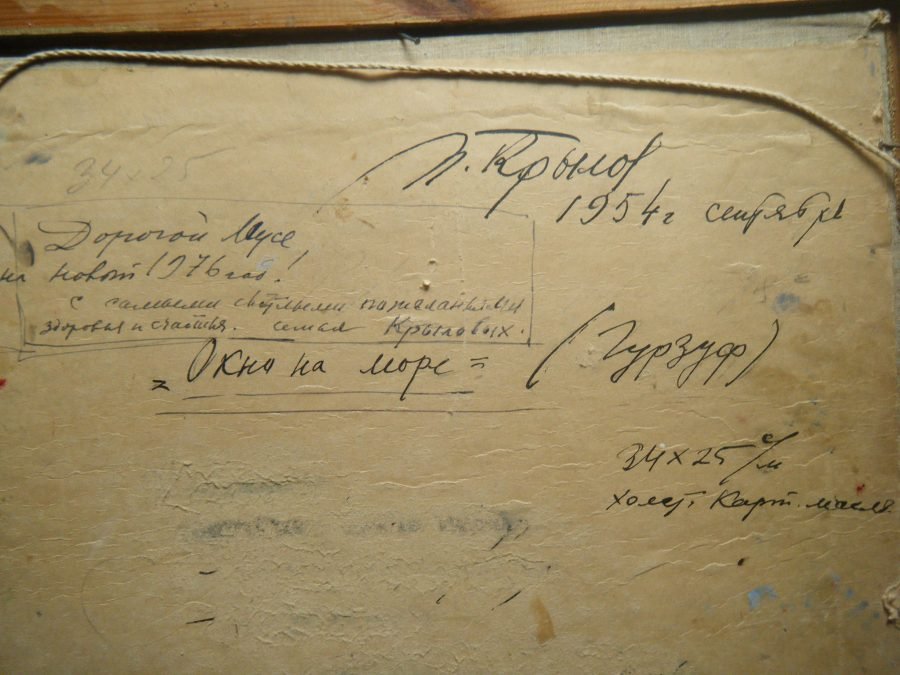 П. Крылов
1954 г сентябрь
34 x 25
Дорогой Мусе
на новый 1976 год!
с самыми светлыми пожеланиями
здоровья и счастья. семья Крыловых.
"Окно на море" (Гурзуф)
34 x 25 с/м
холст, карт. масло